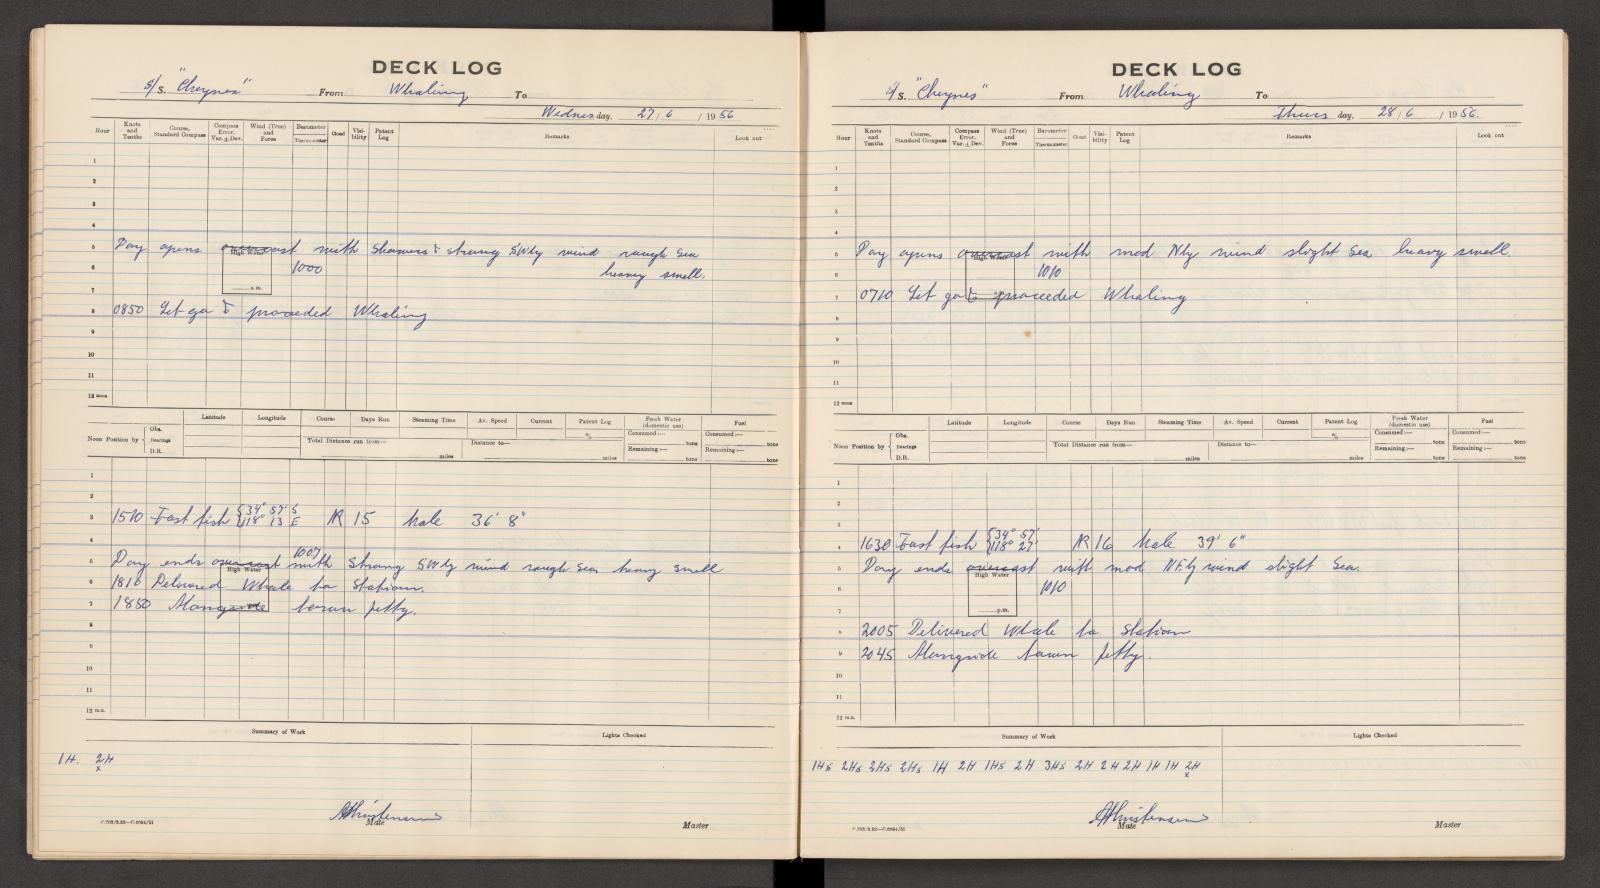 DECK LOG
S/S. "Cheynes" From Whaling To
Wednesday, 27/6/1956
Hour Knots and Tenths Course, Standard Compass Compass Error. Var. ± Dev. Wind (True) and Force Barometer Thermometer Cloud Visibility Patent Log Remarks Look out
1
2
3
4
5 Day opens overcast with Showers & strong SWly wind rough Sea
High Water
6 1000 heavy swell.
7 a.m.
8 0850 Let go & proceeded Whaling
9
10
11
12 noon
Latitude Longitude Course Days Run Steaming Time Av. Speed Current Patent Log Fresh Water (domestic use) Fuel
Noon Position by Obs. Bearings D.R.
Total Distance run from— miles Distance to— miles % Consumed:— tons Remaining:— tons Consumed:— tons Remaining:— tons
1
2
3 1510 Fast fish {34° 57' S 118° 13 E N 15 Male 36' 8"
4
1007
5 Day ends overcast with Strong SWly wind rough Sea heavy swell
High Water
6 1810 Delivered Whale to Station.
7 1850 Alongside town jetty.
8
9
10
11
12 m.n.
Summary of Work Lights Checked
1H. 2H
x
AChristensen
Mate Master
C.702/2.52—C.6694/51
DECK LOG
S/S. "Cheynes" From Whaling To
Thursday, 28/6/1956.
Hour Knots and Tenths Course, Standard Compass Compass Error. Var. ± Dev. Wind (True) and Force Barometer Thermometer Cloud Visibility Patent Log Remarks Look out
1
2
3
4
5 Day opens overcast with mod Nly wind slight Sea heavy swell
High Water
6 1010
7 0710 Let go & proceeded Whaling
8
9
10
11
12 noon
Latitude Longitude Course Days Run Steaming Time Av. Speed Current Patent Log Fresh Water (domestic use) Fuel
Noon Position by Obs. Bearings D.R.
Total Distance run from— miles Distance to— miles % Consumed:— tons Remaining:— tons Consumed:— tons Remaining:— tons
1
2
3
4 1630 Fast fish {34° 57' 118° 27' N 16 Male 39' 6"
5 Day ends overcast with mod NEly wind slight Sea.
High Water
6 1010
7 p.m.
8 2005 Delivered Whale to Station
9 2045 Alongside town jetty.
10
11
12 m.n.
Summary of Work Lights Checked
1Hs 2Hs 2Hs 2Hs 1H 2H 1Hs 2H 3Hs 2H 2H 2H 1H 1H 2H
x
AChristensen
Mate Master